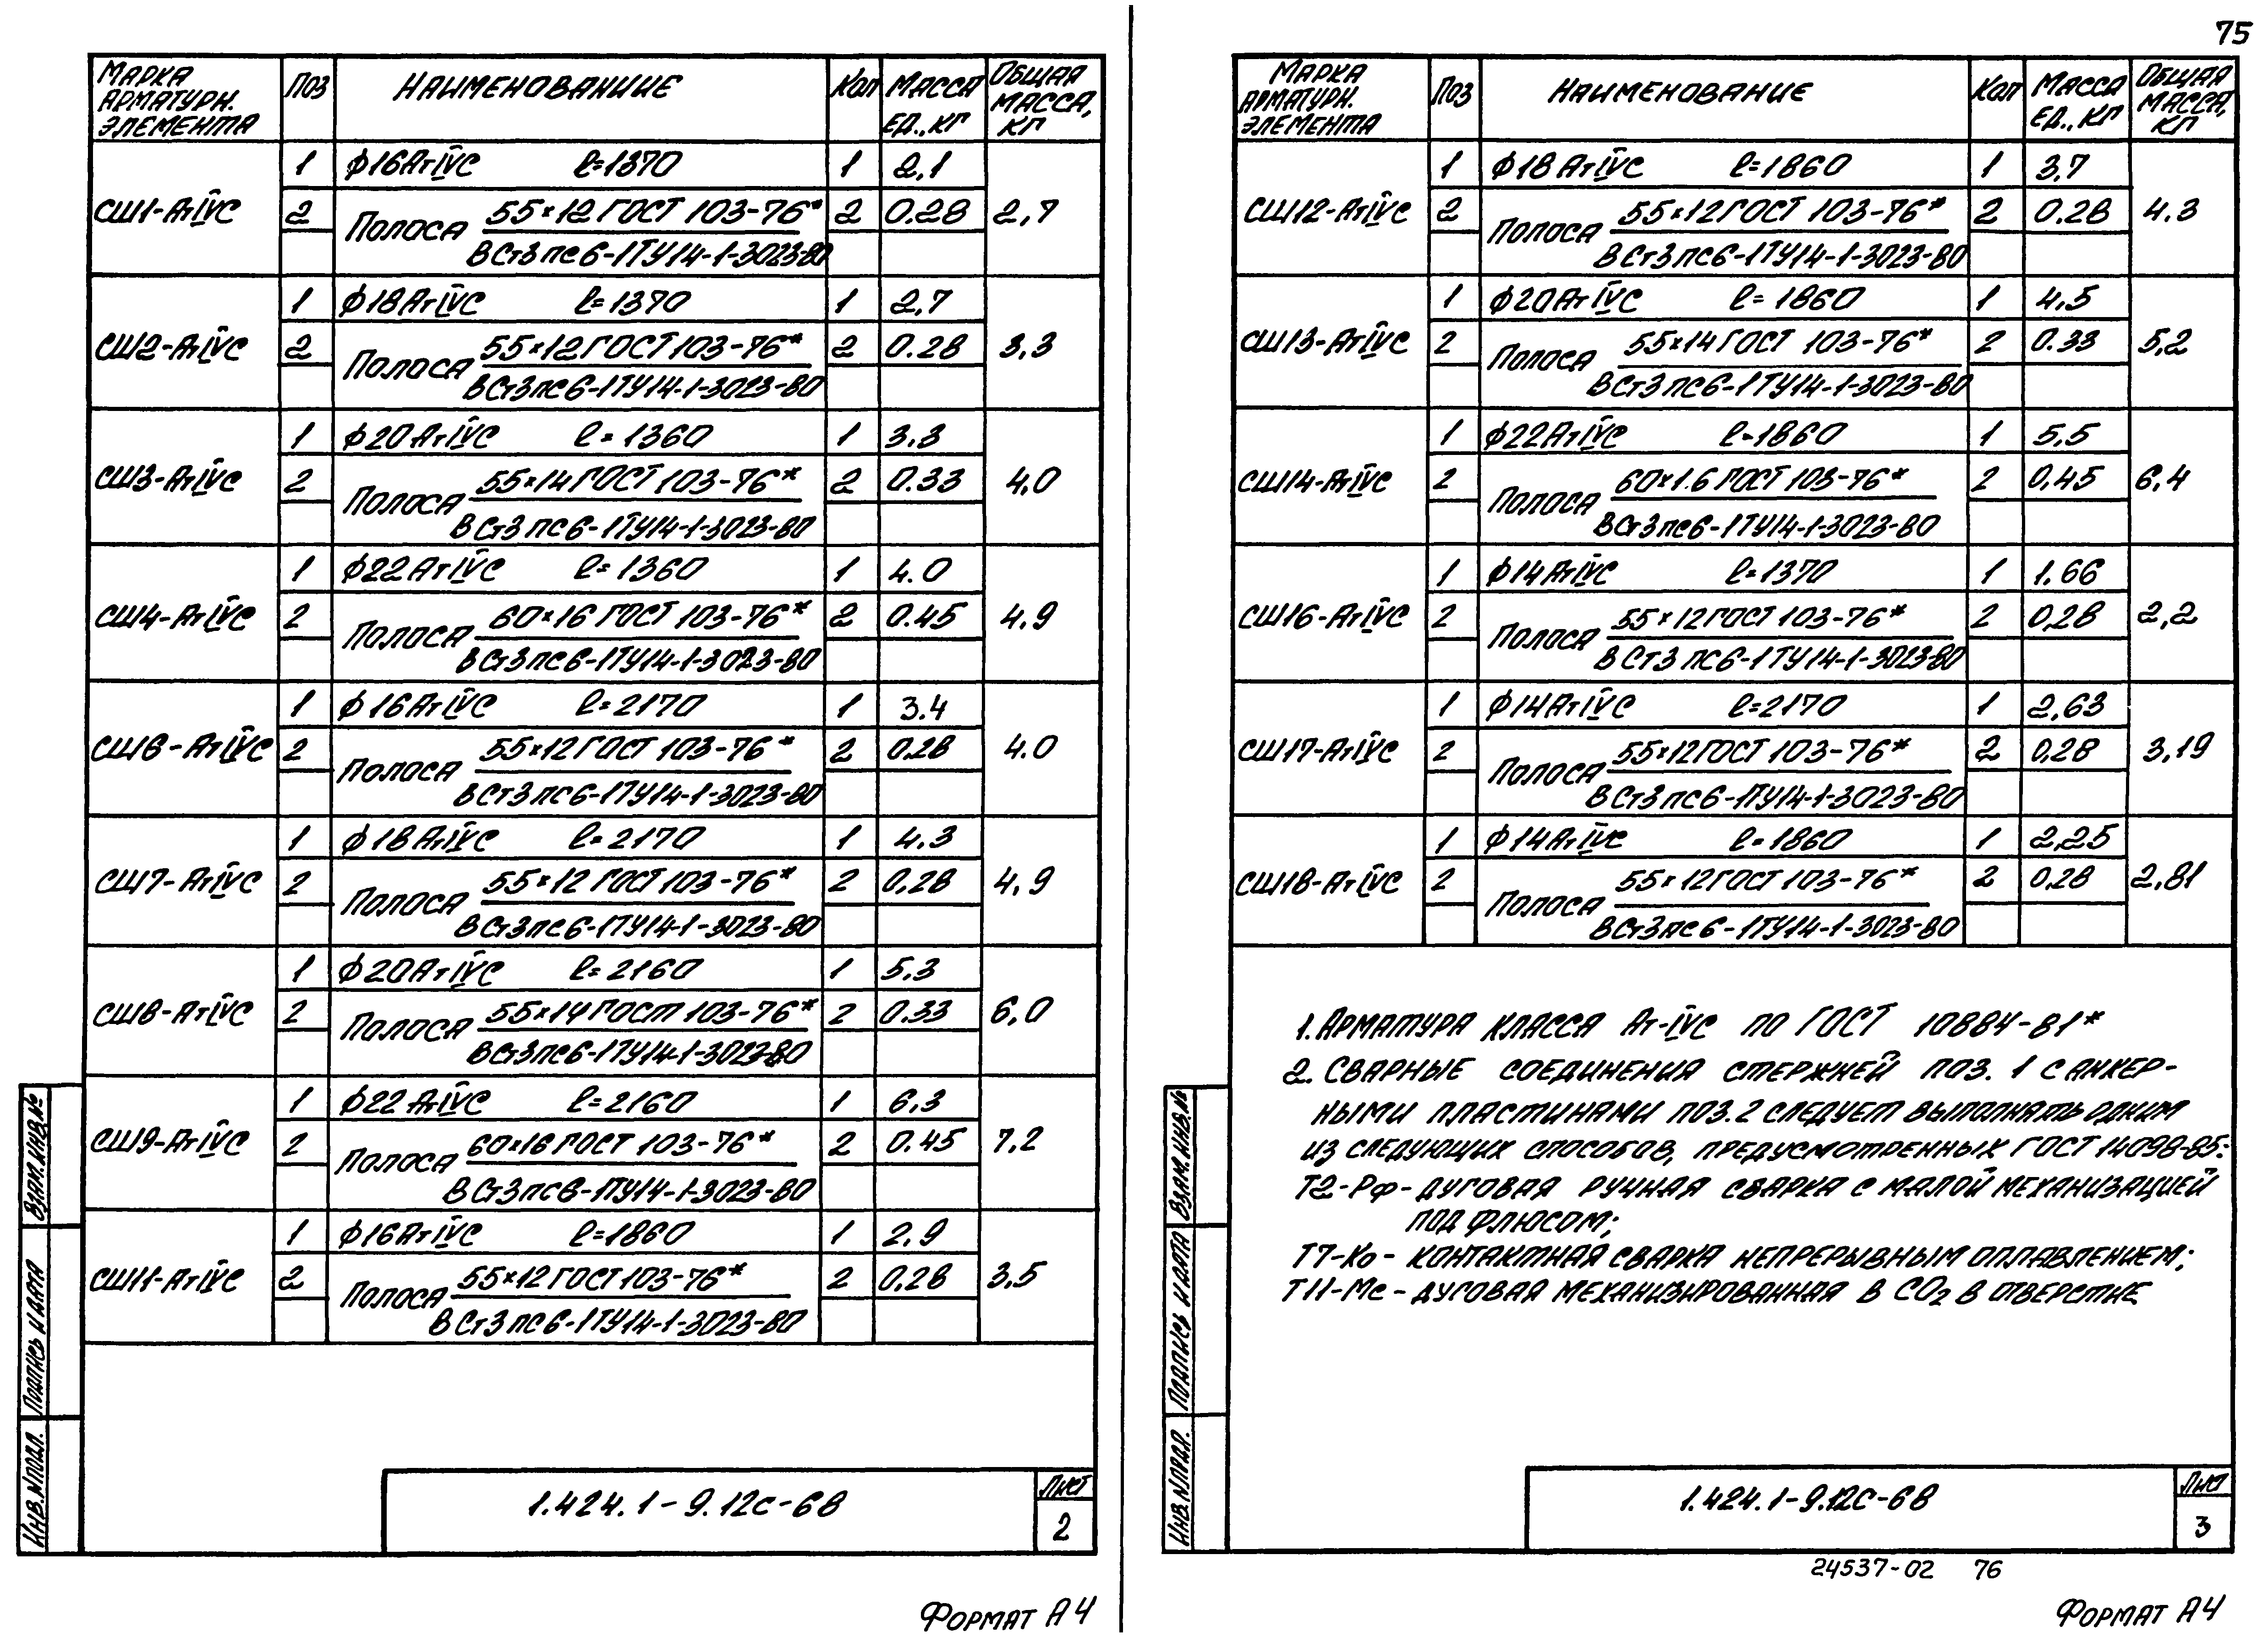 75
Марка арматурн. элемента Поз Наименованние Кол Масса ед., кг Общая масса, кг
СШ1-АтIVС
1 ϕ16АтIVС ℓ=1370 1 2,1
2 Полоса 55×12 ГОСТ 103-76* 2 0.28 2,7
ВСт3пс6-1ТУ14-1-3023-80
СШ2-АтIVС
1 ϕ18АтIVС ℓ=1370 1 2,7
2 Полоса 55×12 ГОСТ 103-76* 2 0.28 3,3
ВСт3пс6-1ТУ14-1-3023-80
СШ3-АтIVС
1 ϕ20АтIVС ℓ=1360 1 3.3
2 Полоса 55×14 ГОСТ 103-76* 2 0.33 4,0
ВСт3пс6-1ТУ14-1-3023-80
СШ4-АтIVС
1 ϕ22АтIVС ℓ=1360 1 4.0
2 Полоса 60×16 ГОСТ 103-76* 2 0.45 4,9
ВСт3пс6-1ТУ14-1-3023-80
СШ6-АтIVС
1 ϕ16АтIVС ℓ=2170 1 3.4
2 Полоса 55×12 ГОСТ 103-76* 2 0,28 4.0
ВСт3пс6-1ТУ14-1-3023-80
СШ7-АтIVС
1 ϕ18АтIVС ℓ=2170 1 4.3
2 Полоса 55×12 ГОСТ 103-76* 2 0,28 4,9
ВСт3пс6-1ТУ14-1-3023-80
СШ8-АтIVС
1 ϕ20АтIVС ℓ=2160 1 5.3
2 Полоса 55×14 ГОСТ 103-76* 2 0.33 6,0
ВСт3пс6-1ТУ14-1-3023-80
СШ9-АтIVС
1 ϕ22АтIVС ℓ=2160 1 6,3
2 Полоса 60×16 ГОСТ 103-76* 2 0.45 7,2
ВСт3пс6-1ТУ14-1-3023-80
СШ11-АтIVС
1 ϕ16АтIVС ℓ=1860 1 2,9
2 Полоса 55×12 ГОСТ 103-76* 2 0,28 3,5
ВСт3пс6-1ТУ14-1-3023-80
Взам.инв.№
Подпись и дата
Инв.№подл.
1.424.1-9.12с-68
Лист
2
Формат А4
Марка арматурн. элемента Поз Наименование Кол Масса ед., кг Общая масса, кг
СШ12-АтIVС
1 ϕ18АтIVС ℓ=1860 1 3,7
2 Полоса 55×12 ГОСТ 103-76* 2 0.28 4.3
ВСт3пс6-1ТУ14-1-3023-80
СШ13-АтIVС
1 ϕ20АтIVС ℓ=1860 1 4,5
2 Полоса 55×14 ГОСТ 103-76* 2 0.33 5,2
ВСт3пс6-1ТУ14-1-3023-80
СШ14-АтIVС
1 ϕ22АтIVС ℓ=1860 1 5.5
2 Полоса 60×1.6 ГОСТ 103-76* 2 0,45 6,4
ВСт3пс6-1ТУ14-1-3023-80
СШ16-АтIVС
1 ϕ14АтIVС ℓ=1370 1 1.66
2 Полоса 55×12 ГОСТ 103-76* 2 0,28 2,2
ВСт3пс6-1ТУ14-1-3023-80
СШ17-АтIVС
1 ϕ14АтIVС ℓ=2170 1 2,63
2 Полоса 55×12 ГОСТ 103-76* 2 0,28 3,19
ВСт3пс6-1ТУ14-1-3023-80
СШ18-АтIVС
1 ϕ14АтIVС ℓ=1860 1 2,25
2 Полоса 55×12 ГОСТ 103-76* 2 0,28 2,81
ВСт3пс6-1ТУ14-1-3023-80
1. Арматура класса Ат-IVС по ГОСТ 10884-81*
2. Сварные соединения стержней поз. 1 с анкер-
ными пластинами поз.2 следует выполнять одним
из следующих способов, предусмотренных ГОСТ 14098-85:
Т2-Рф- дуговая ручная сварка с малой механизацией
под флюсом;
Т7-Ко- контактная сварка непрерывным оплавлением;
Т11-Мс- дуговая механизированная в СО₂ в отверстие
Взам.инв.№
Подпись и дата
Инв.№подл.
1.424.1-9.12с-68
Лист
3
24537-02 76
Формат А4